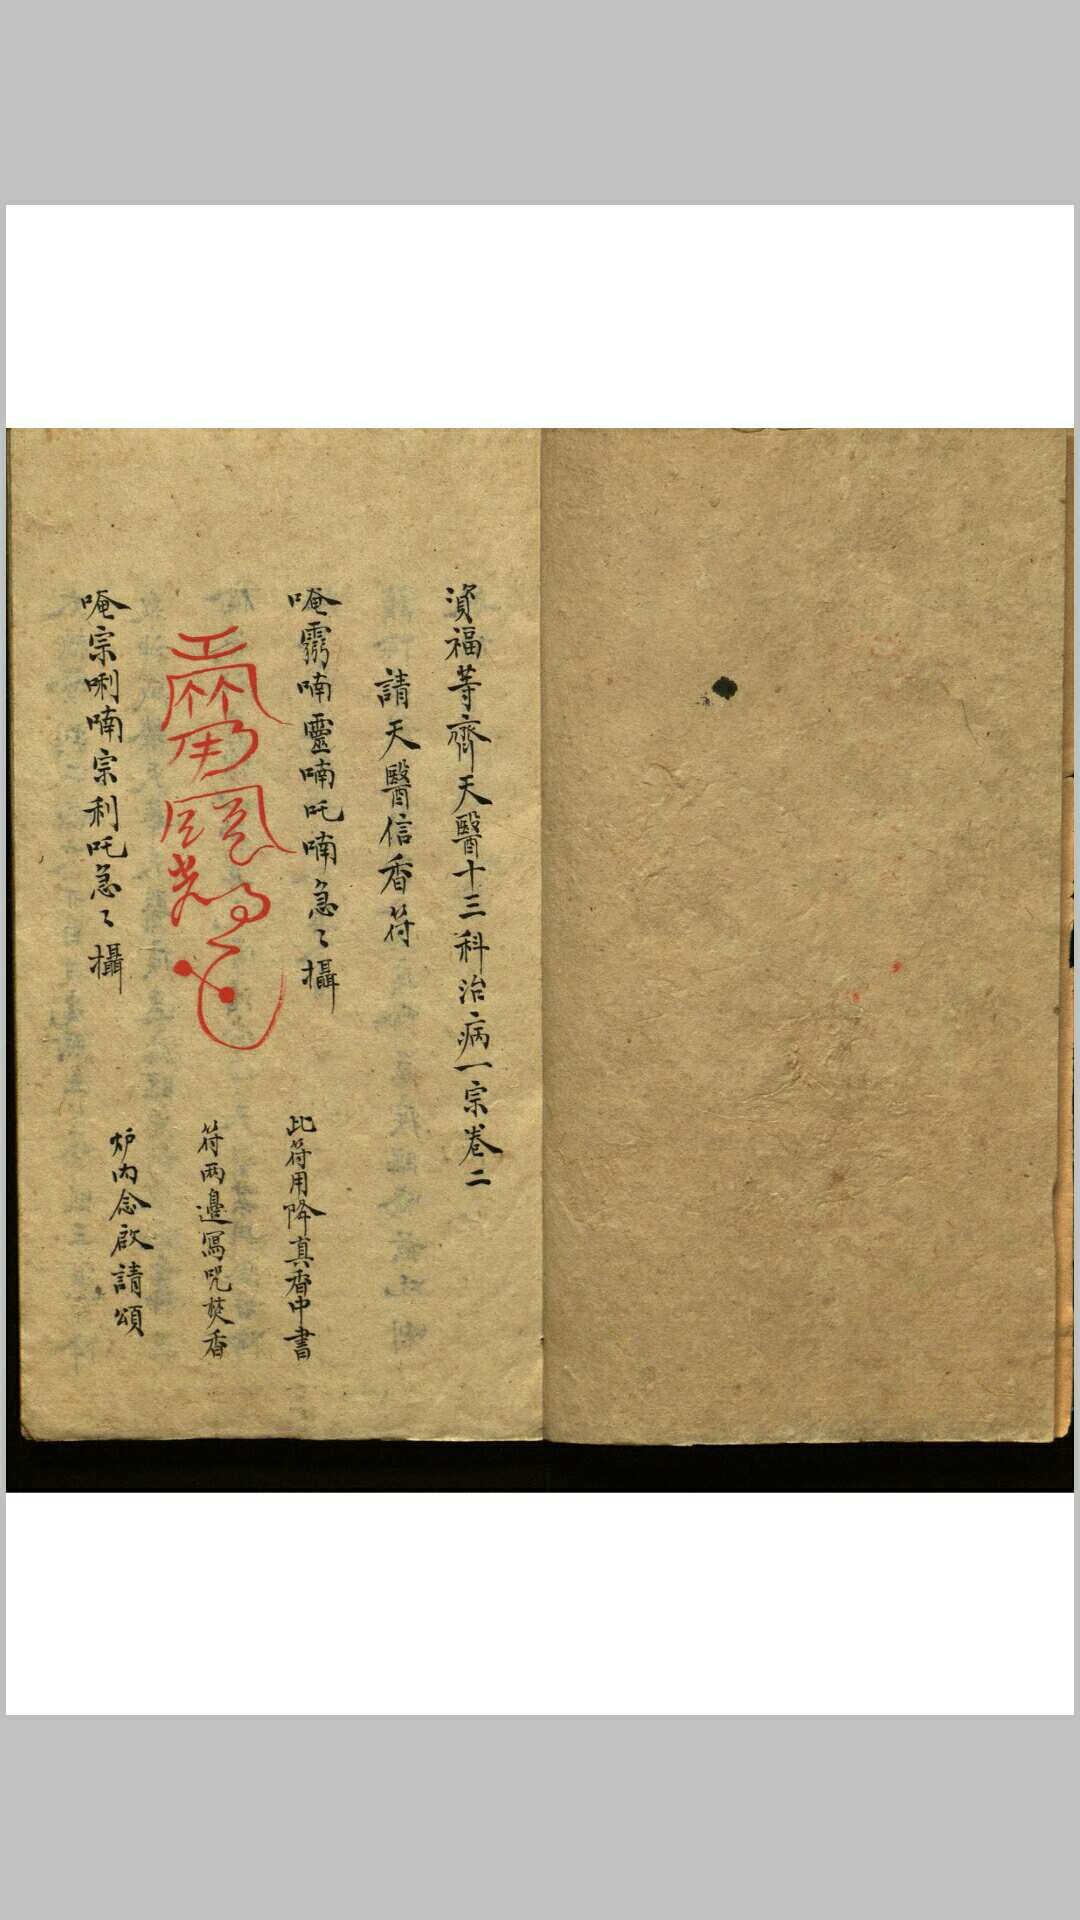 資福等齊天醫十三科治病一宗卷二
請天醫信香符
唵霛喃靈喃吒喃急〻攝
此符用降真香中書
符兩邊寫咒焚香
唵宗唎喃宗利吒急〻攝
炉內念啟請頌